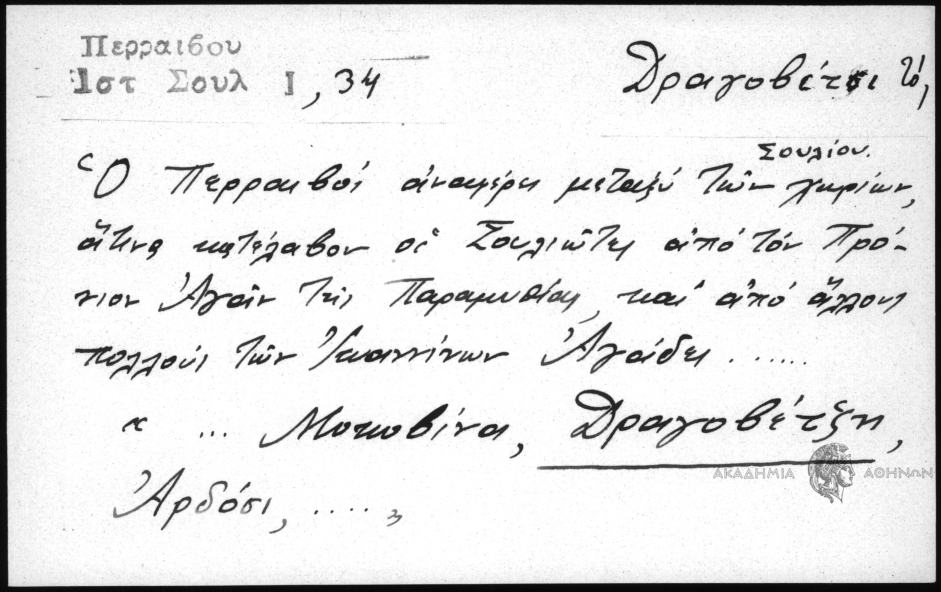 Περραιβου
Ιστ Σουλ Ι, 34
Δραγοβέτσι τό,
Σουλίου.
Ὁ Περραιβός ἀναφέρει μεταξύ τῶν χωρίων,
ἅτινα κατέλαβον οἱ Σουλιῶτες ἀπό τόν Πρό-
νιον Ἀγᾶν τῆς Παραμυθίας, καί ἀπό ἄλλους
πολλούς τῶν Ἰωαννίνων Ἀγάδες ......
« ... Μυκοβίνα, Δραγοβέτζη,
Ἀρδόσι, .... »
ΑΚΑΔΗΜΙΑ ΑΘΗΝΩΝ